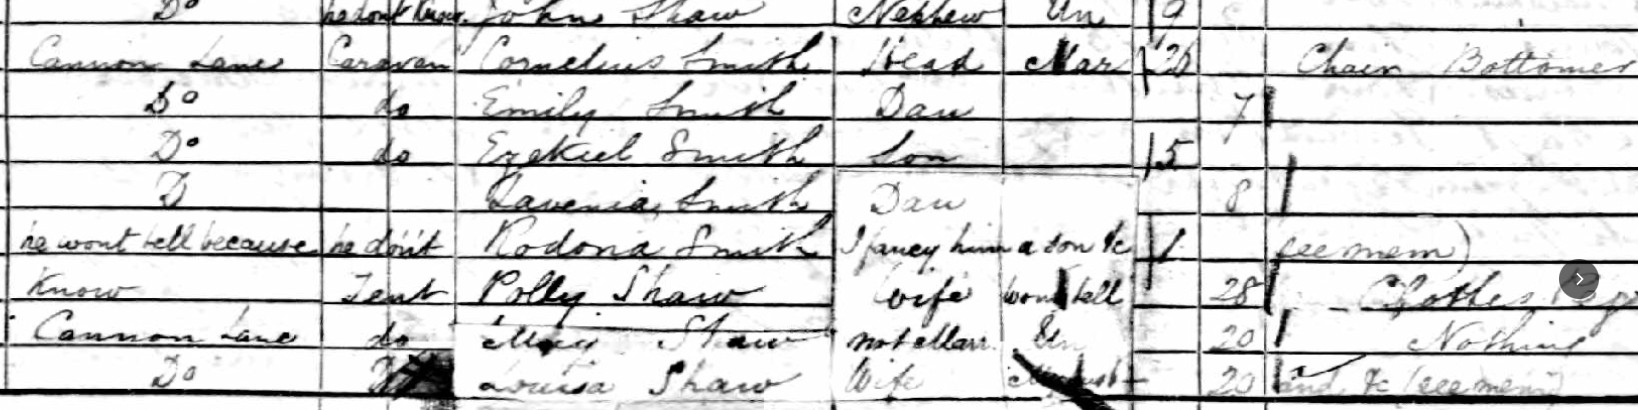 Do he dont Know John Shaw Nephew Un 19
Cannon Lane Caravan Cornelius Smith Head Mar 26 Chair Bottomer
Do do Emily Smith Dau 7
Do do Ezekiel Smith Son 5
D Lavenia Smith Dau 8
he wont tell because he don't Rodona Smith I fancy him a son &c 1 (see mem)
Know Tent Polly Shaw Wife wont tell 28 Clothes
Cannon Lane do Mary Shaw not Marr. Un 20 Nothing
Do Louisa Shaw Wife 20 and &c (see mem)